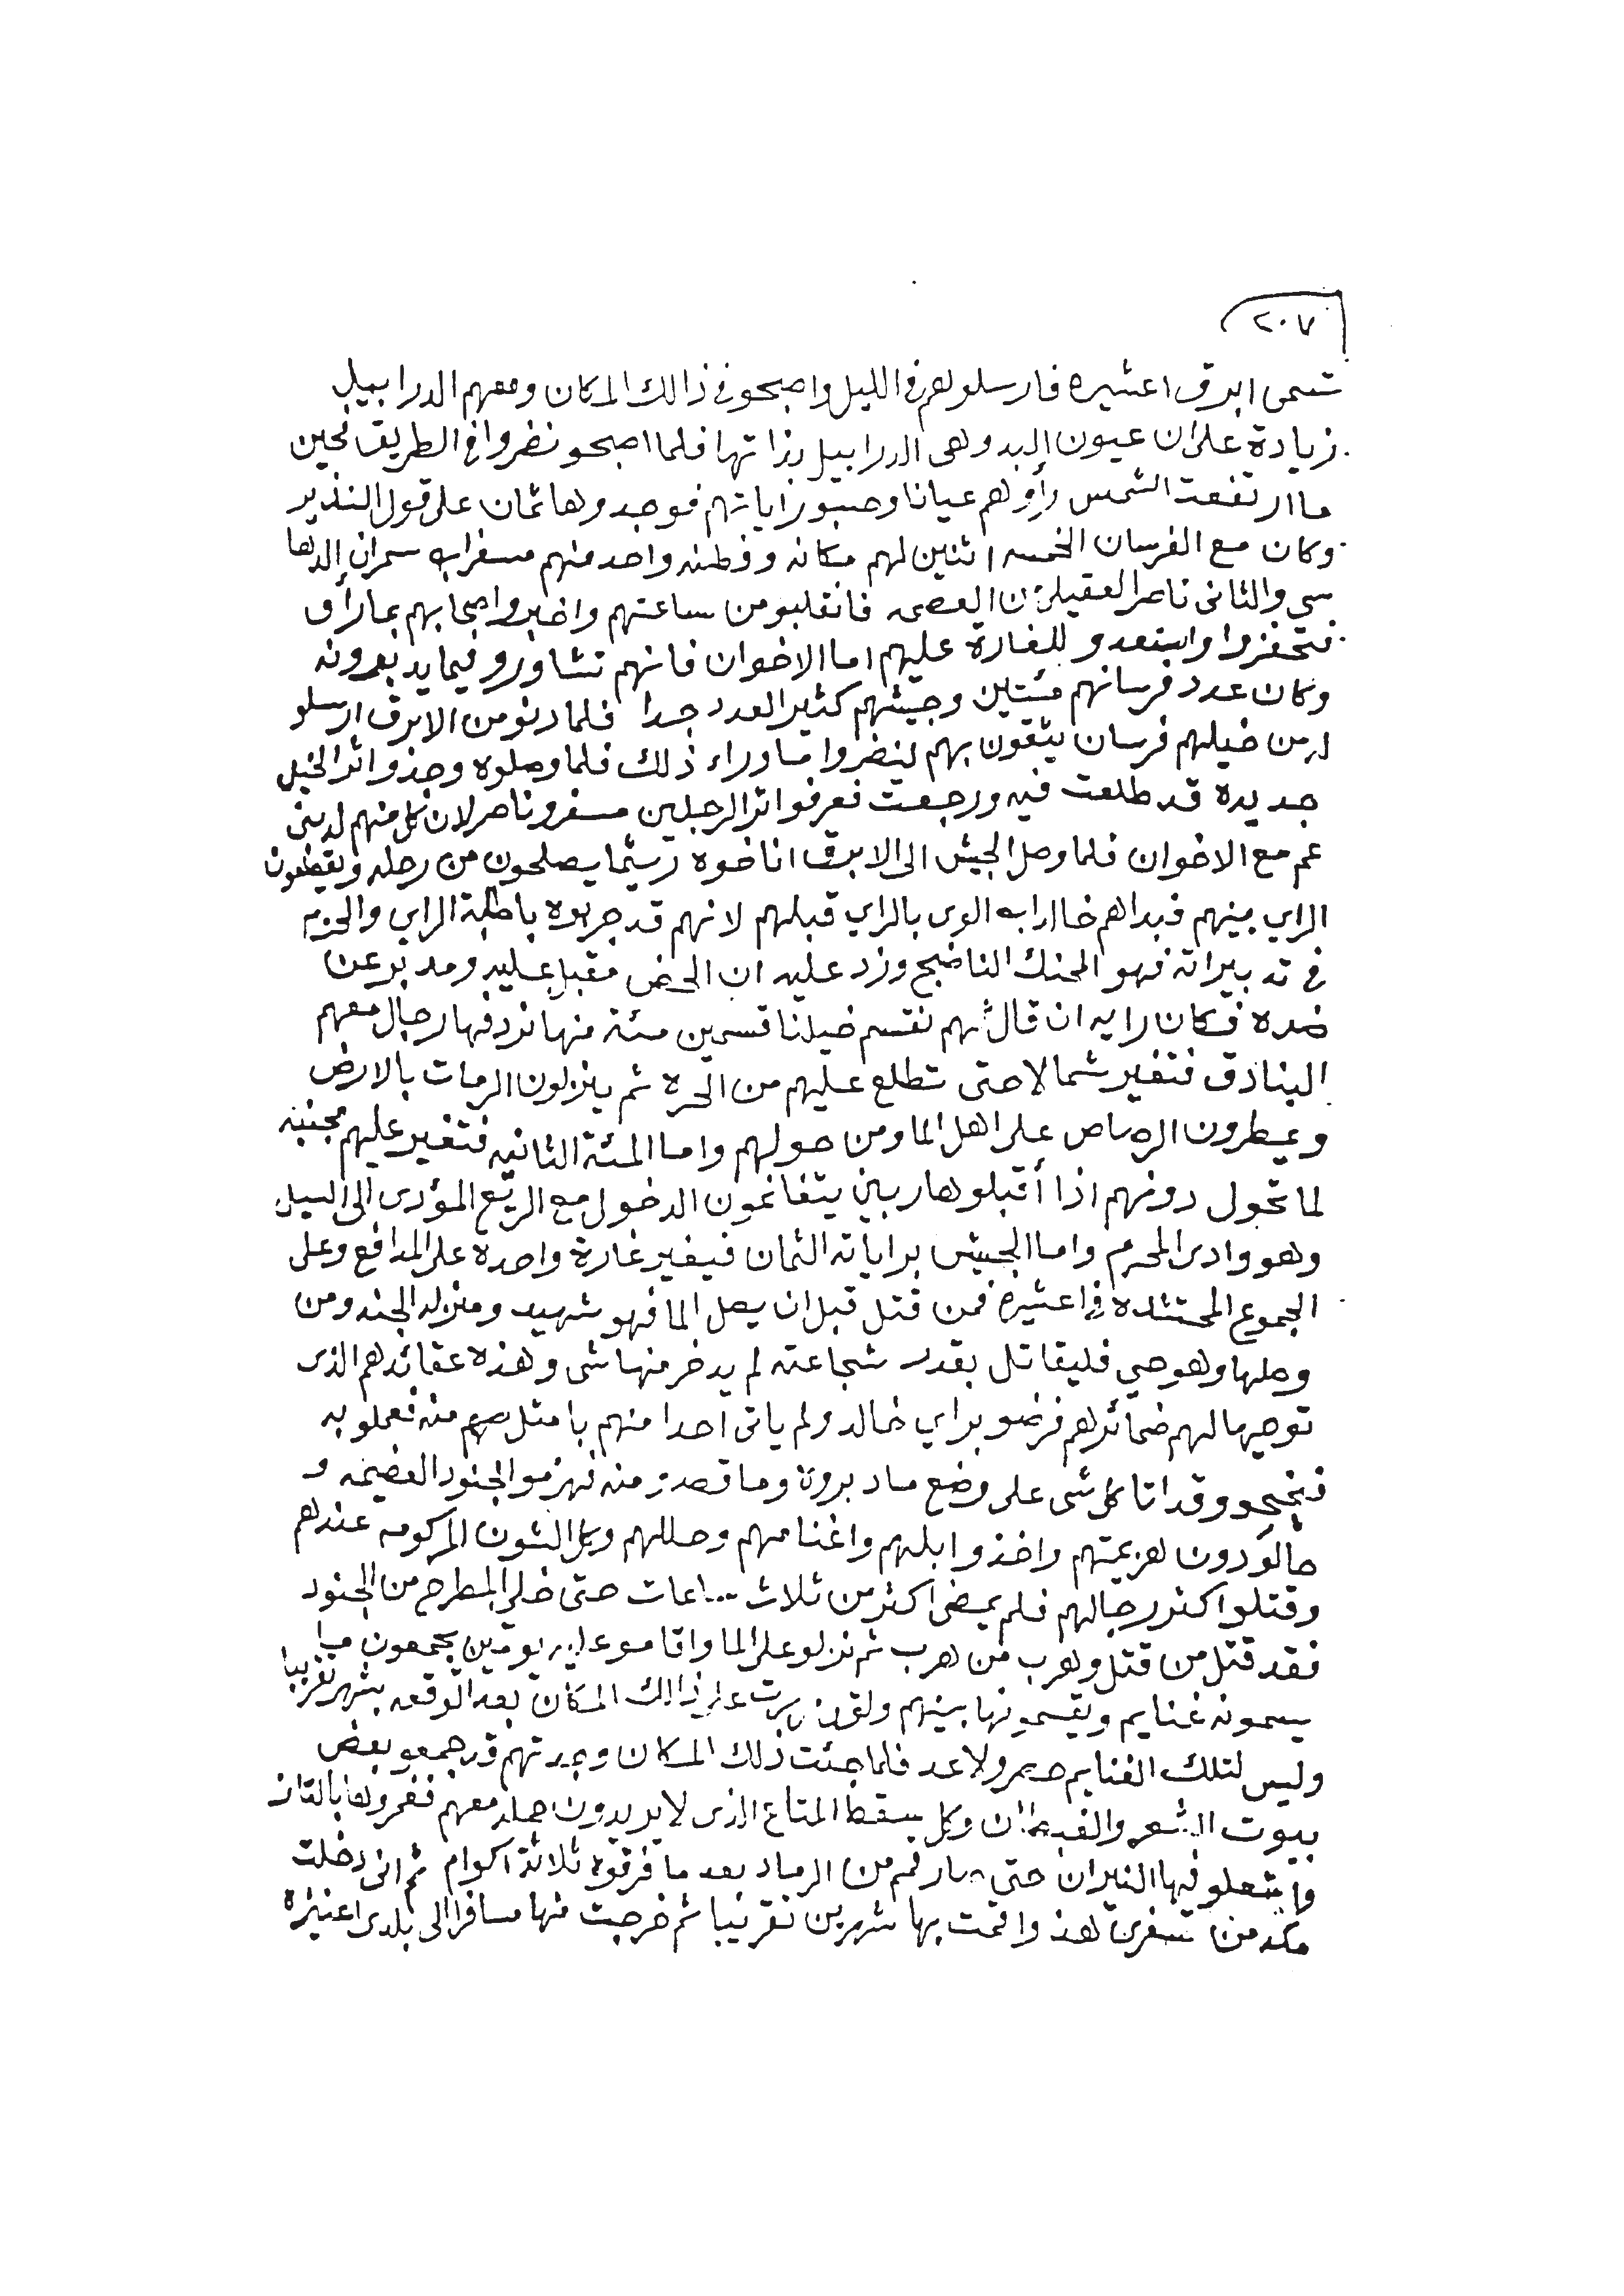 ٢٠٧
تسمى ابرق اعشيره فارسلوهم في الليل واصبحو في ذالك المكان ومعهم الدرابيل
زيادة على ان عيون البدو هي الدرابيل بذاتها فلما اصبحو نضروا في الطريق فحين
ما ارتفعت الشمس رأوهم عيانا وحسبو راياتهم فوجدوها ثمان على قول النذير
وكان مع الفرسان الخمسه اثنين لهم مكانه وفطنه واحد منهم مسفر ابـ سمران الدها
سي والثاني ناصر العقيلي من العصمه فانقلبو من ساعتهم واخبروا اصحابهم بما رأو
فتحفزوا واستعدو للغارة عليهم اما الاخوان فانهم تشاورو فيما يدبرونه
وكان عدد فرسانهم مئتين وجيشهم كثير العدد جدا فلما دنو من الابرق ارسلو
له من خيلهم فرسان يثقون بهم لينضروا ما وراء ذلك فلما وصلوه وجدو اثر الخيل
جديده قد طلعت فيه ورجعت فعرفوا اثر الرجلين مسفر وناصر لان كل منهم له بني
عم مع الاخوان فلما وصل الجيش الى الابرق اناخوه ريثما يصلحون من رحله ويقطعون
الراي بينهم فبداهم خالد ابـ الوى بالراي قبلهم لانهم قد جربوه باصابة الراي والحزم
في تدبيراته فهو المحنك الناضج وزد عليه ان الحض مقبل عليه ومدبر عن
ضده فكان رايه ان قال لهم نقسم خيلنا قسمين مئة منها نردفها رجال معهم
البنادق فتغير شمالا حتى تطلع عليهم من الحره ثم ينزلون الرمات بالارض
ويمطرون الرصاص على اهل الما ومن حولهم واما المئة الثانيه فتغير عليهم مجنبه
لما تحول دونهم اذا أقبلو هاربين يتفاغمون الدخول مع الريع المؤدي الى السيل
وهو وادي المحرم واما الجيش براياته الثمان فيغير غارة واحده على المدافع وعلى
الجموع المحتشده في اعشيره فمن قتل قبل ان يصل الما فهو شهيد ومنزله الجنه ومن
وصلها وهو حي فليقاتل بقدر شجاعته لم يدخر منها شي وهذه عقائدهم الذي
توحيها لهم ضمائرهم فرضو براي خالد ولم ياتي احدا منهم بامثل منه فعملو به
فنجحو وقد اتا كل شي على وضع ما دبروة وما قصدو منه فهزمو الجنود العضيمه و
صالودون لهزيمتهم واخذو ابلهم واغنامهم وحللهم وكل الشون المركومه عندهم
وقتلوا كثر رجالهم فلم يمضي اكثر من ثلاث ساعات حتى خلي المطرح من الجنود
فقد قتل من قتل وهرب من هرب ثم نزلو على الما واقامو عليه يومين يجمعون ما
يسمونه غنايم ويقسمونها بينهم ولقد مررت على ذالك المكان بعد الوقعه بشهر تقريبا
وليس لتلك الغنايم حصر ولا عد فلما جئت ذلك المكان وجدتهم قد جمعو بعض
بيوت الشعر والقبطان وكل سقط المتاع الذي لا يريدون حمله معهم فغمروها بالقاز
واشعلو فيها النيران حتى صار فحم من الرماد بعد ما فرقوه ثلاثة اكوام ثم اني دخلت
مكه من سفرتي هذه واقمت بها شهرين تقريبا ثم خرجت منها مسافرا الى بلدي اعنيزة